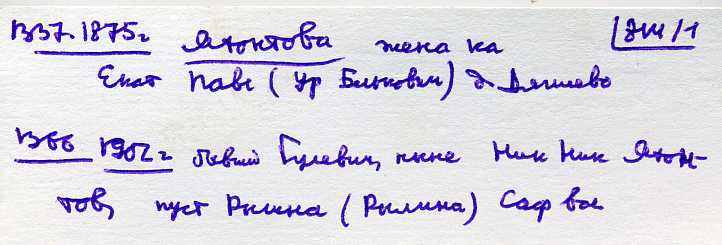 ВВ7. 1875г Яхонтова жена ка
Екат Павл (ур Билькович) д. Дягилево
В66 1902г бывш Гулевич, ныне Ник Ник Яхон-
тов, пуст Рылина (Рылина) Саф вол